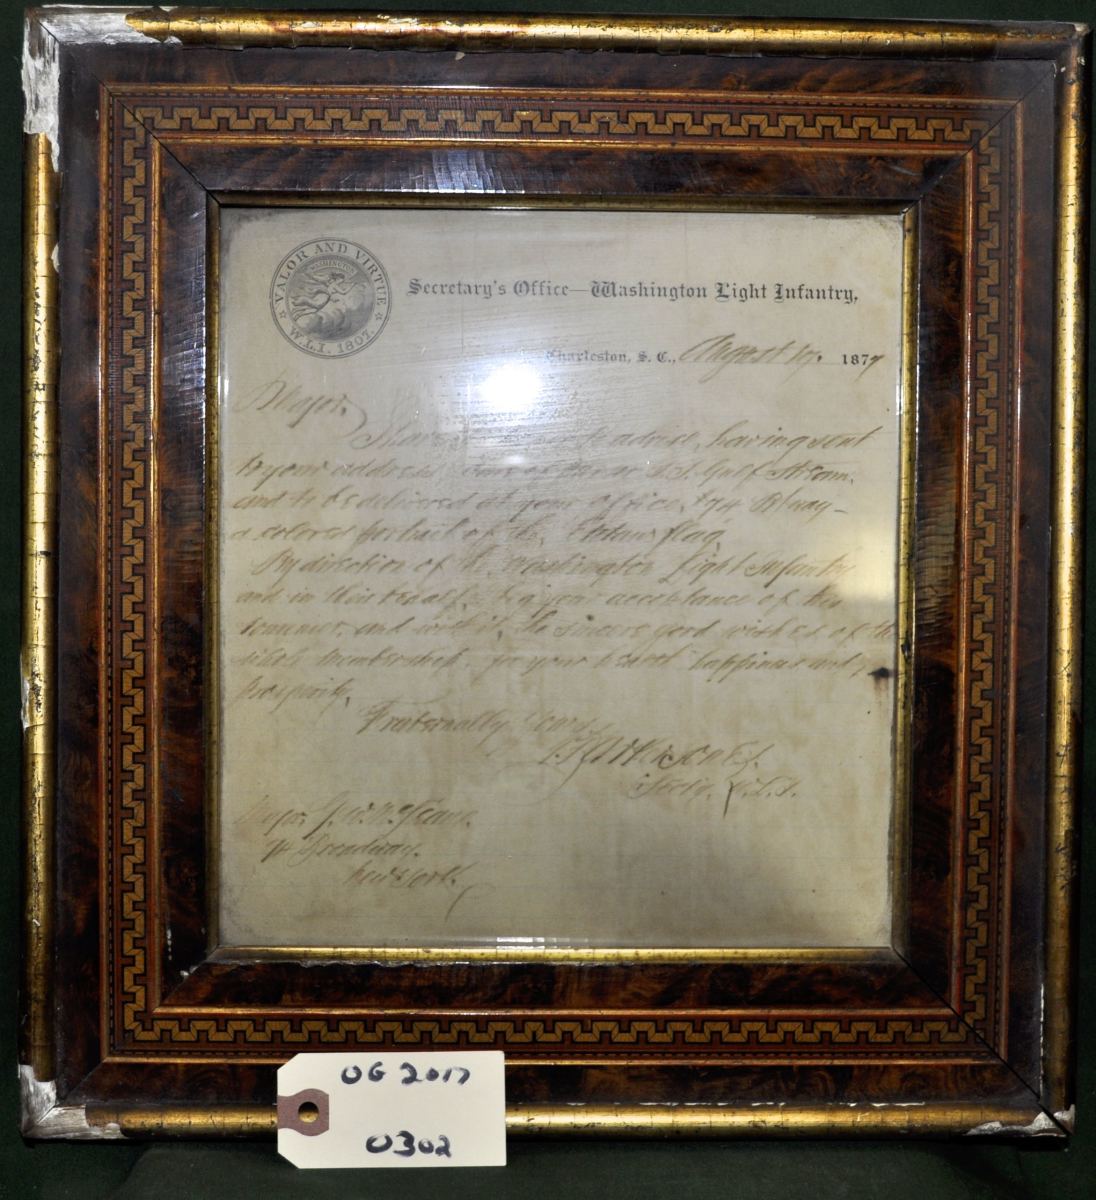 VALOR AND VIRTUE
WASHINGTON
W.L.I. 1807.
Secretary's Office—Washington Light Infantry,
Charleston, S. C., August 17. 1877
Major.
I have to advise, having sent
to your address, Steamer S.S. Gulf Stream,
and to be delivered at your office, 194 B'way—
a colored portrait of the Eutaw flag.
By direction of the Washington Light Infantry
and in their behalf, I beg your acceptance of this
and with it, the sincere good wishes of the
whole membership, for your health happiness and p
rosperity.
Fraternally Yours
Secty. W.L.I.
Major J. W.
Broadway.
New York.
OG 2017
0302